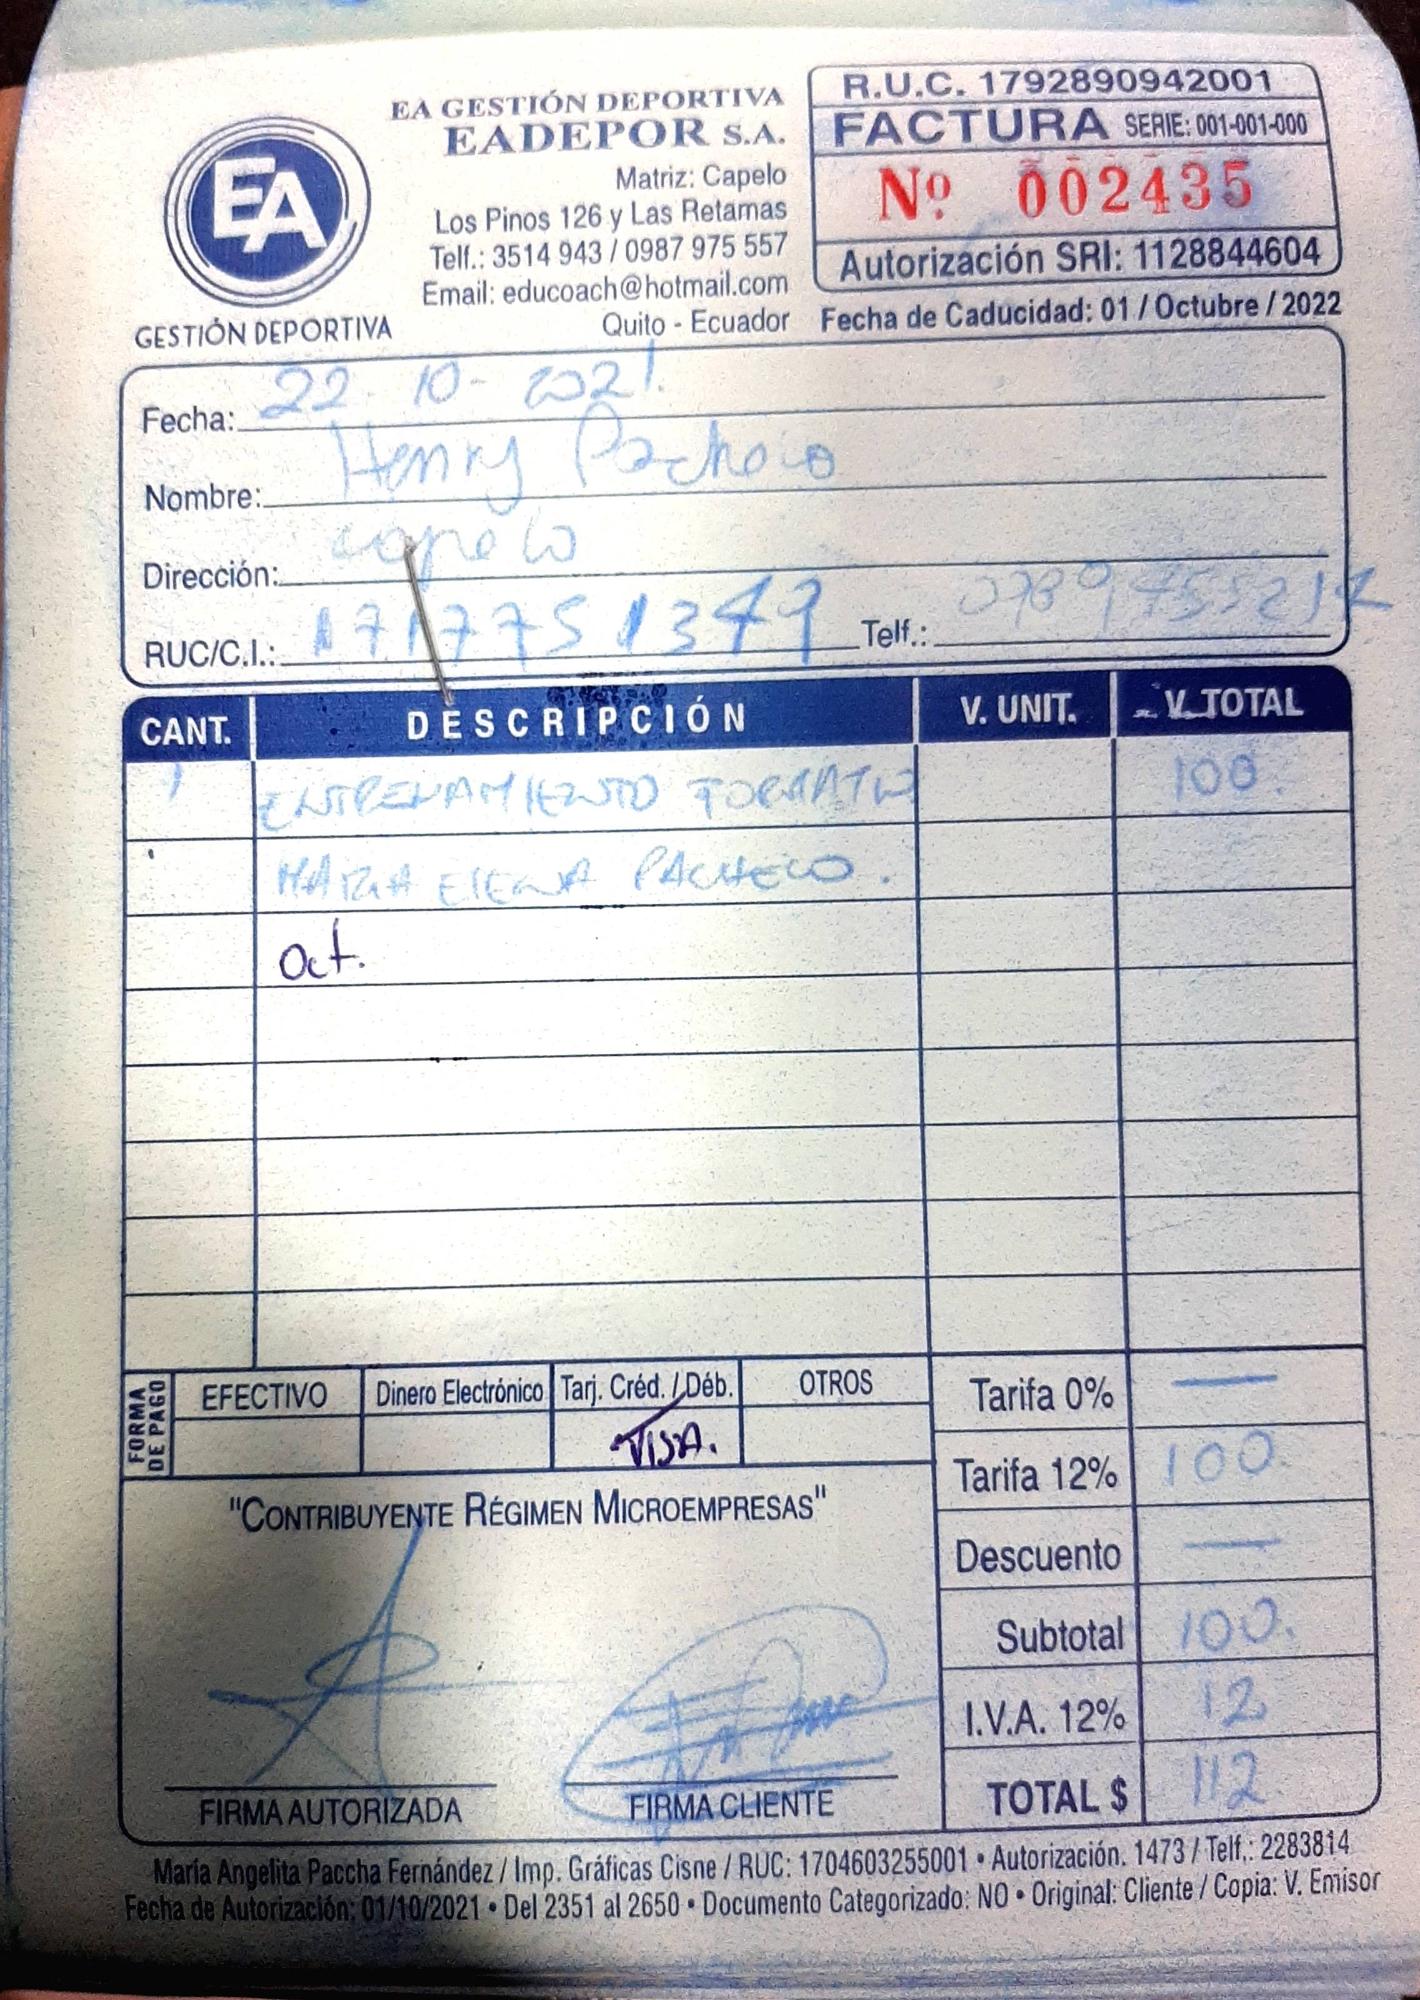 EA
GESTIÓN DEPORTIVA
EA GESTIÓN DEPORTIVA
EADEPOR S.A.
Matriz: Capelo
Los Pinos 126 y Las Retamas
Telf.: 3514 943 / 0987 975 557
Email: educoach@hotmail.com
Quito - Ecuador
R.U.C. 1792890942001
FACTURA SERIE: 001-001-000
Nº 002435
Autorización SRI: 1128844604
Fecha de Caducidad: 01 / Octubre / 2022
Fecha: 22 - 10 - 2021.
Nombre: Henry Pacheco
Dirección: Capelo
RUC/C.I.: 1717751349 Telf.:
CANT. DESCRIPCIÓN V. UNIT. V. TOTAL
1 ENTRENAMIENTO FORMATIVO 100.
MARIA ELENA PACHECO.
Oct.
FORMA DE PAGO
EFECTIVO Dinero Electrónico Tarj. Créd. / Déb. OTROS
VISA.
Tarifa 0% —
Tarifa 12% 100.
Descuento —
Subtotal 100.
I.V.A. 12% 12
TOTAL $ 112
"CONTRIBUYENTE RÉGIMEN MICROEMPRESAS"
FIRMA AUTORIZADA FIRMA CLIENTE
María Angelita Paccha Fernández / Imp. Gráficas Cisne / RUC: 1704603255001 • Autorización. 1473 / Telf.: 2283814
Fecha de Autorización: 01/10/2021 • Del 2351 al 2650 • Documento Categorizado: NO • Original: Cliente / Copia: V. Emisor